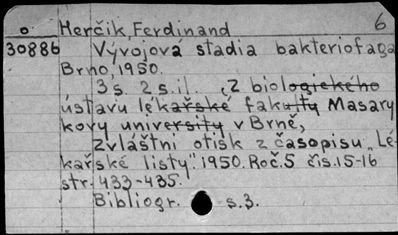 o Herčik, Ferdinand 6
30886 Vývojová stadia bakteriofaga
Brno, 1950.
3 s. 2 s. il. „Z biologického
ústavu lékařské fakulty Masary
kovy university v Brně,
Zvláštní otisk z časopisu „Lé-
kařské listy" 1950. Roč. 5 čís. 15-16
str. 433-435.
Bibliogr. s. 3.